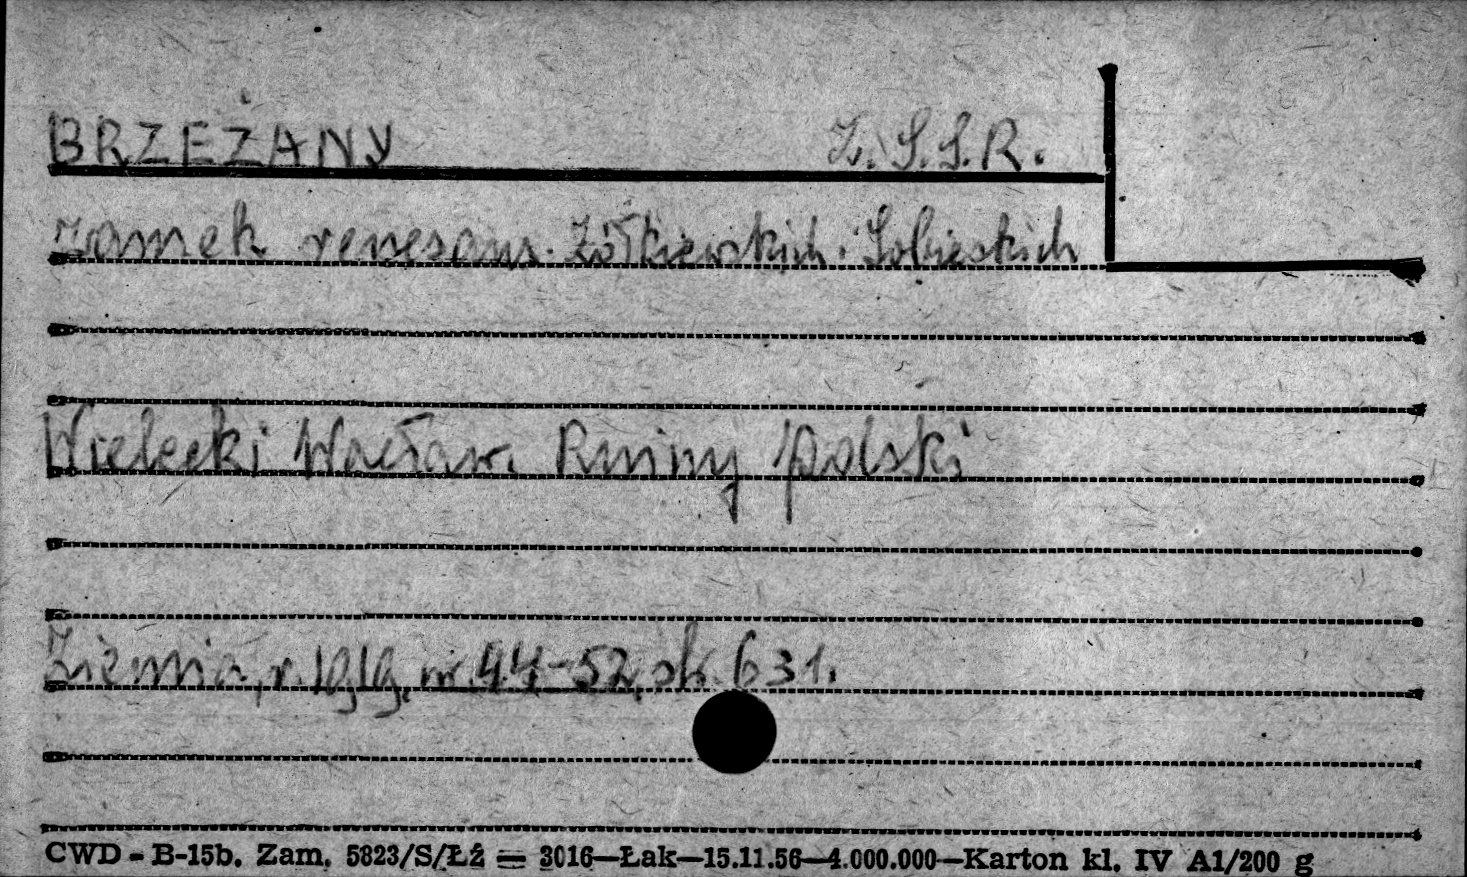 BRZEŻANY Z.S.S.R.
zamek renesans. Żółkiewskich i Sobieskich
Wielecki Wacław. Ruiny polski
Ziemia, r. 1919, nr 44-52, sk. 631.
CWD - B-15b. Zam. 5823/S/Łź = 3016—Łak—15.11.56—4.000.000—Karton kl. IV A1/200 g